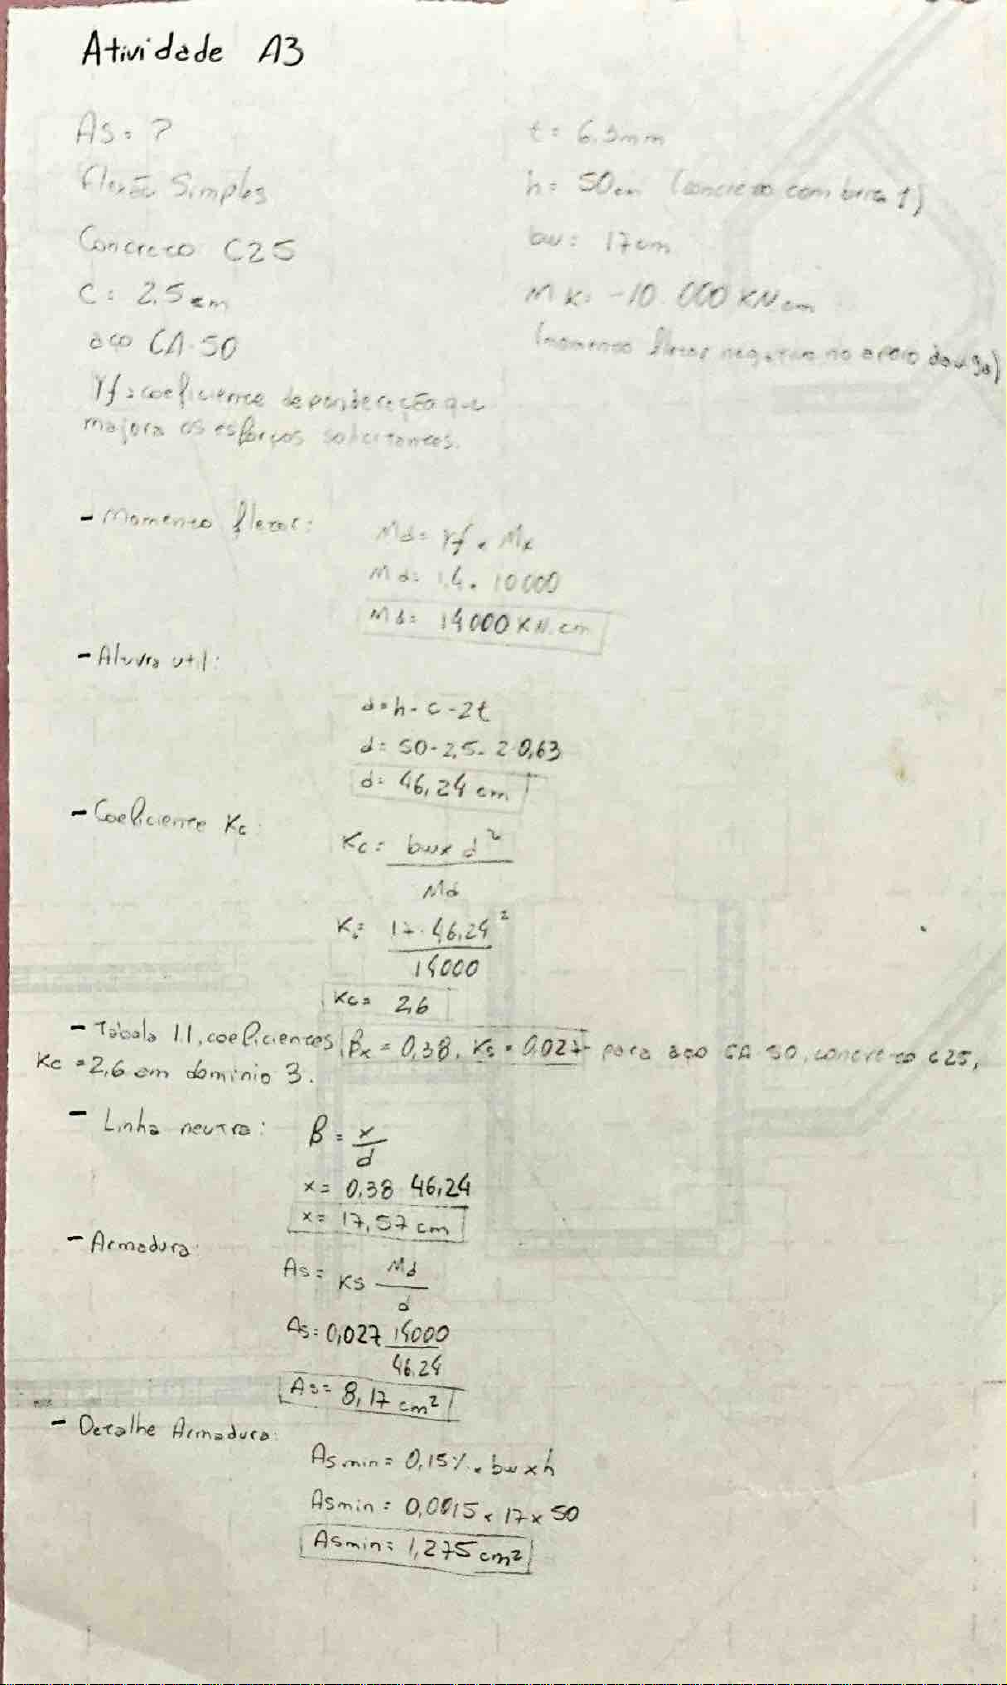 Atividade A3
As = ?
Flexão Simples
Concreto C25
C = 2.5 cm
aço CA-50
γf = coeficiente de ponderação que
majora os esforços solicitantes.
t = 6.3mm
h = 50cm (concreto com brita 1)
bw = 17cm
Mk = -10.000 KN cm
(momento fletor negativo no apoio da viga)
- Momento fletor:
Md = γf . Mk
Md = 1,4 . 10000
Md = 14000 KN.cm
- Aluvra util:
d = h - c - 2t
d = 50 - 2,5 - 2 0,63
d = 46,24 cm
- Coeficiente Kc:
Kc = bw x d²
Md
Kc = 17 . 46,24²
14000
Kc = 2,6
- Tabala 1.1, coeficientes βx = 0,38, Ks = 0,027 para aço CA 50, concreto C25,
Kc = 2,6 em dominio 3.
- Linha neutra:
β = x
d
x = 0,38 46,24
x = 17,57 cm
- Armadura:
As = Ks Md
d
As = 0,027 14000
46.24
As = 8,17 cm²
- Detalhe Armadura:
Asmin = 0,15% . bw x h
Asmin = 0,0015 x 17 x 50
Asmin = 1,275 cm²